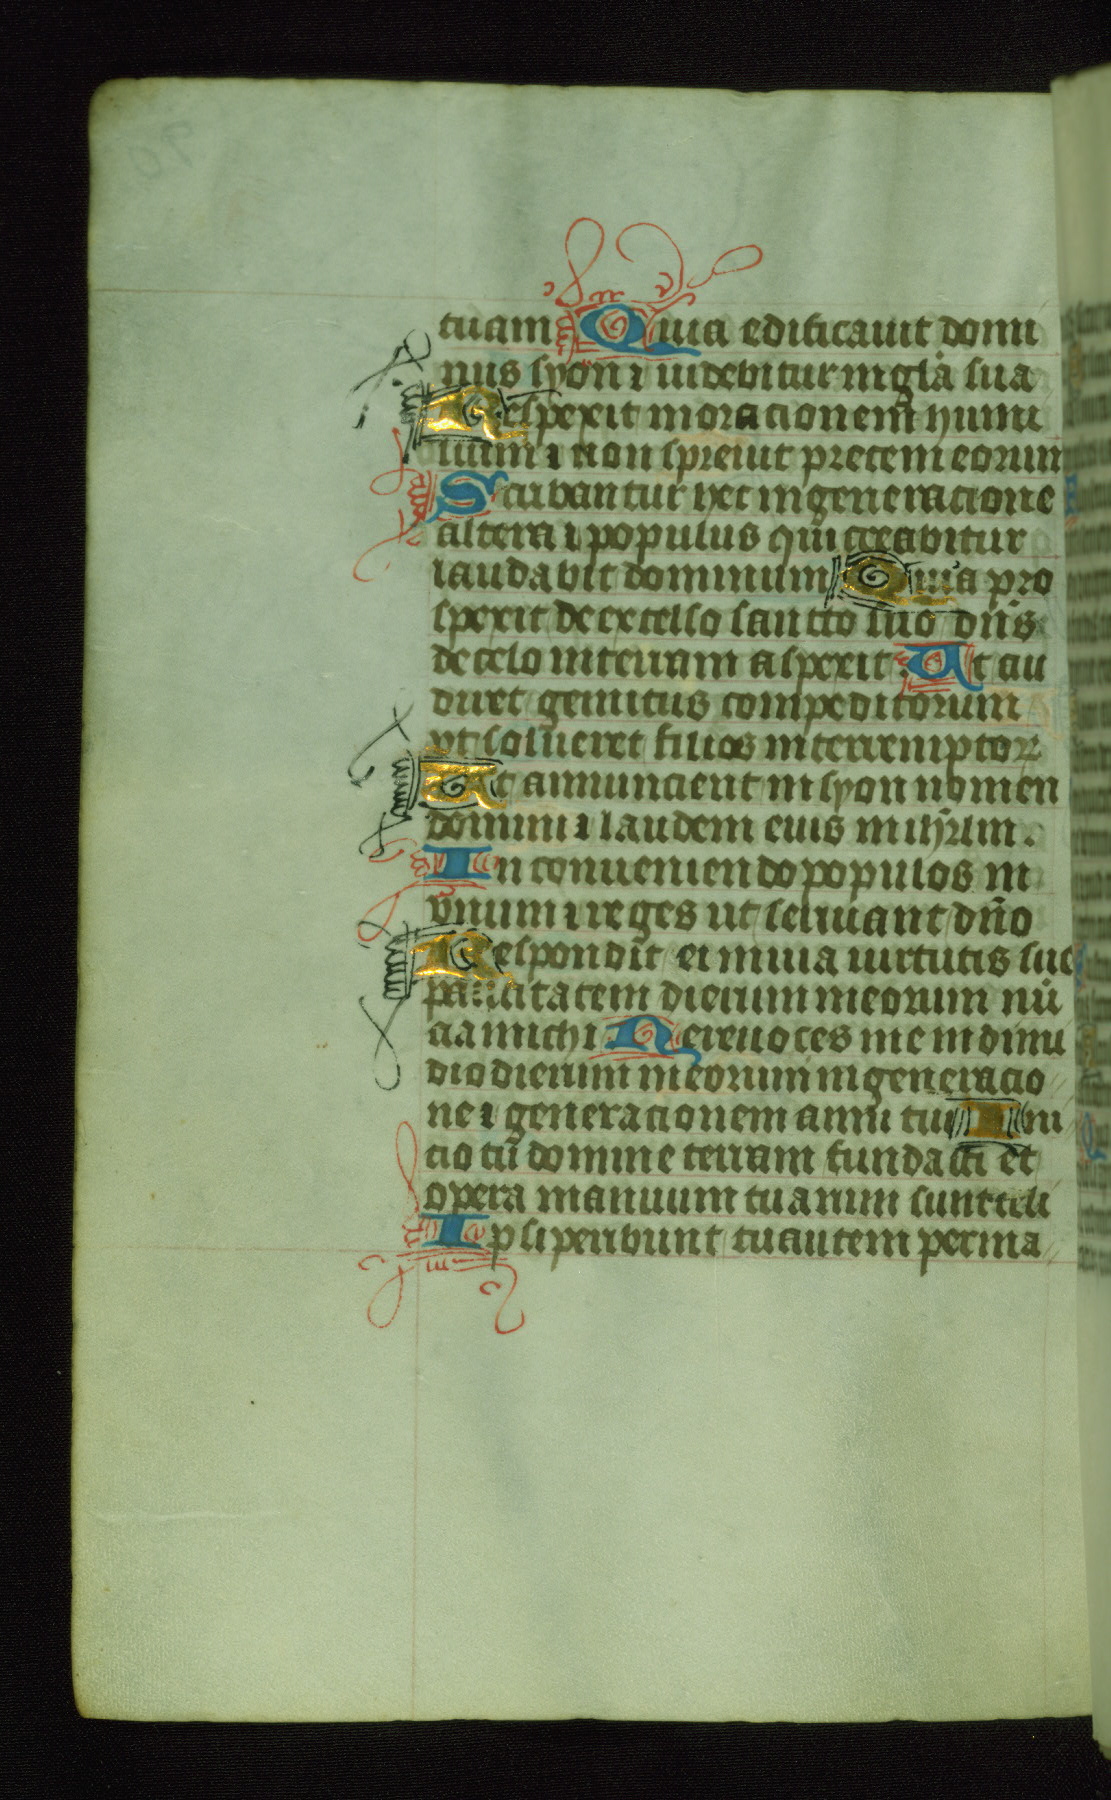 tuam Quia edificauit domi
nus syon ⁊ uidebitur in gl̃a sua
Respexit in oracionem humi
lium ⁊ non spreuit precem eorum
Scribantur hec in generacione
altera ⁊ populus qui creabitur
laudabit dominum Quia pro
spexit de excelso sancto suo dñs
de celo in terram aspexit Ut au
diret gemitus compeditorum
vt solueret filios interremptoꝝ
Ut annuncient in syon nomen
domini ⁊ laudem eius in ihr̃lm.
In conueniendo populos in
vnum ⁊ reges ut seruiant dño
Respondit ei in uia uirtutis sue
paucitatem dierum meorum nũ
cia michi Ne reuoces me in dimi
dio dierum meorum in generacio
ne ⁊ generacionem anni tui Ini
cio tu domine terram fundasti et
opera manuum tuarum sunt celi
Ipsi peribunt tu autem perma